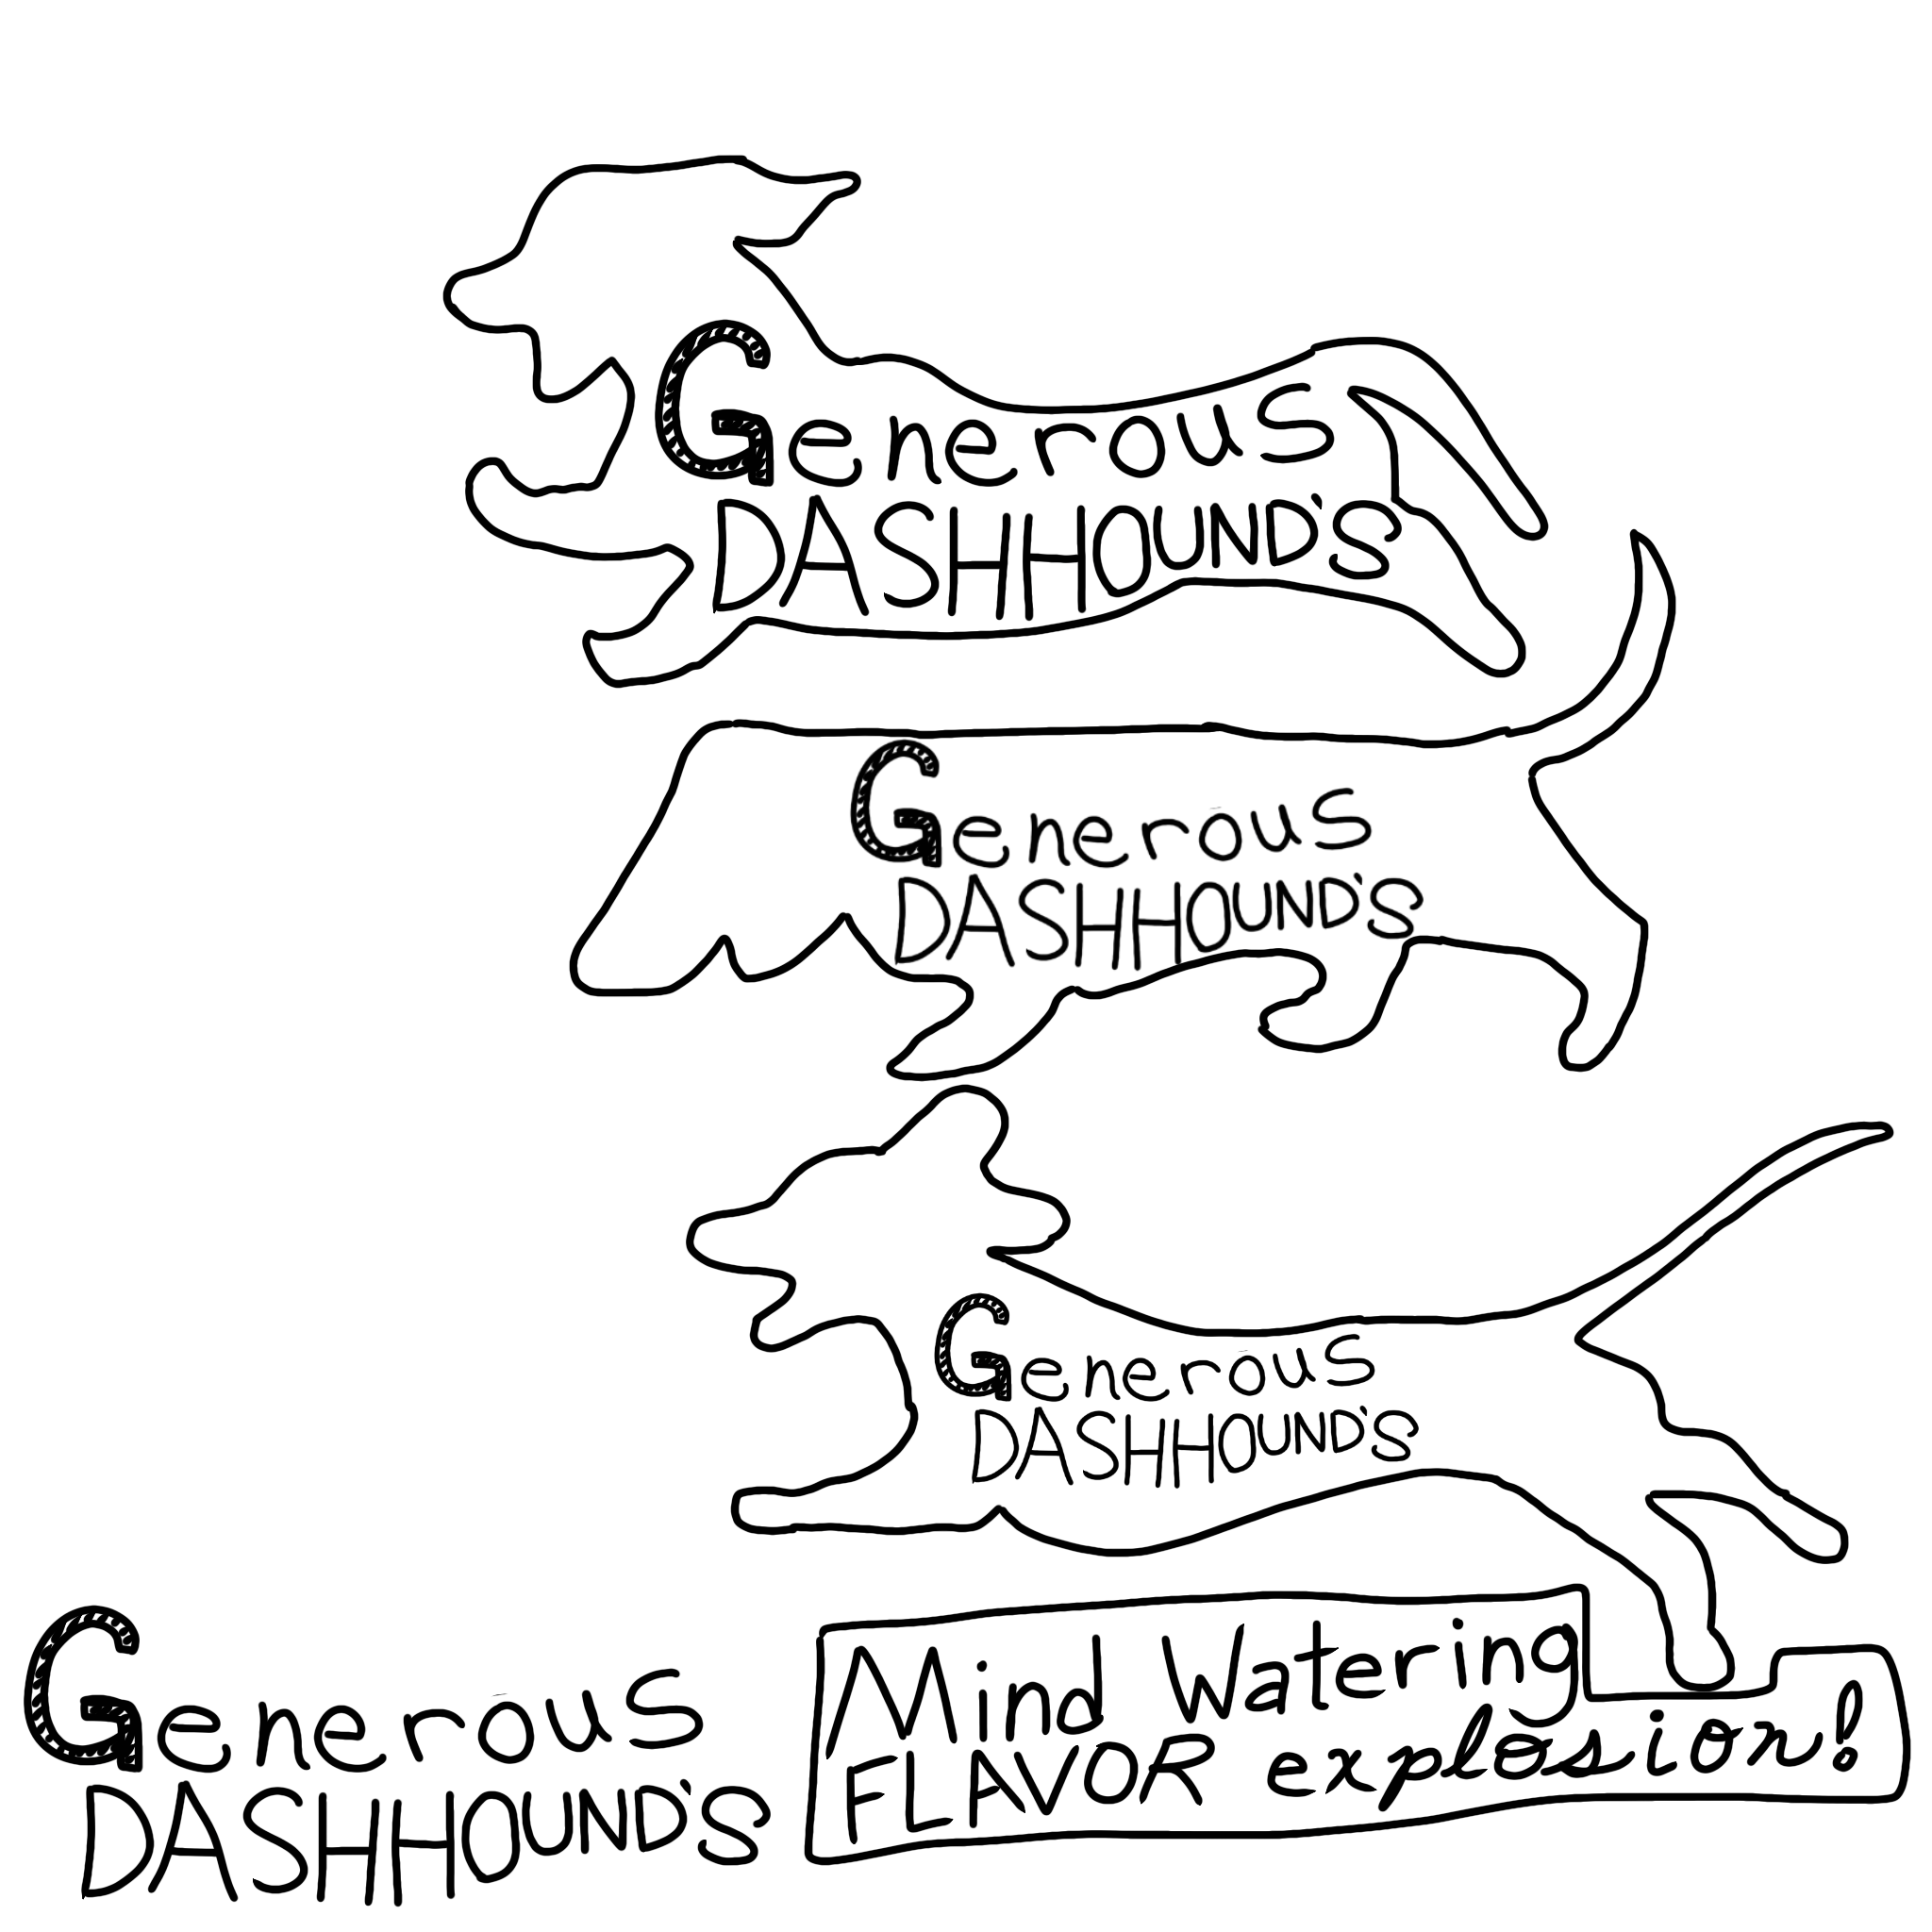 Generous
DASHHOUND'S
Generous
DASHHOUND'S
Generous
DASHHOUND'S
Generous
DASHHOUND'S
Mind Watering
FLAVOR explosion!